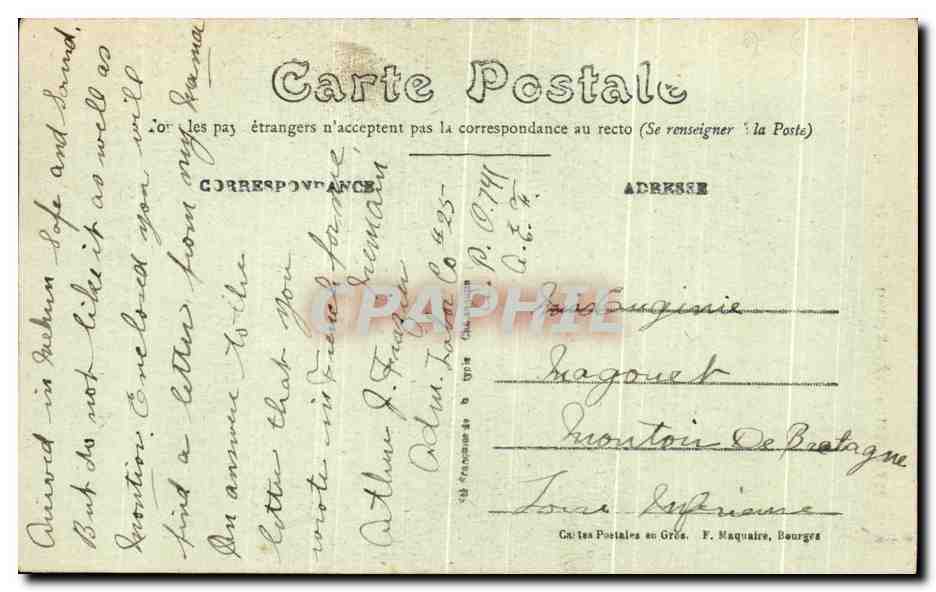 Carte Postale
les pays étrangers n'acceptent pas la correspondance au recto (Se renseigner à la Poste)
CORRESPONDANCE
ADRESSE
Arrived in Mehun Safe and Sound.
But do not like it as well as
Montion. Enclosed you will
find a letter from my Mama
In answer to the
letter that you
wrote in French for me,
Arthur J. Tremain
Adm. Labor Co #25-
A. P. O. 741
A. E. F.
Eugenie
Magouet
Montoir De Bretagne
Loire Inferieure
Cartes Postales en Gros. F. Maquaire, Bourges
CPAPHIL